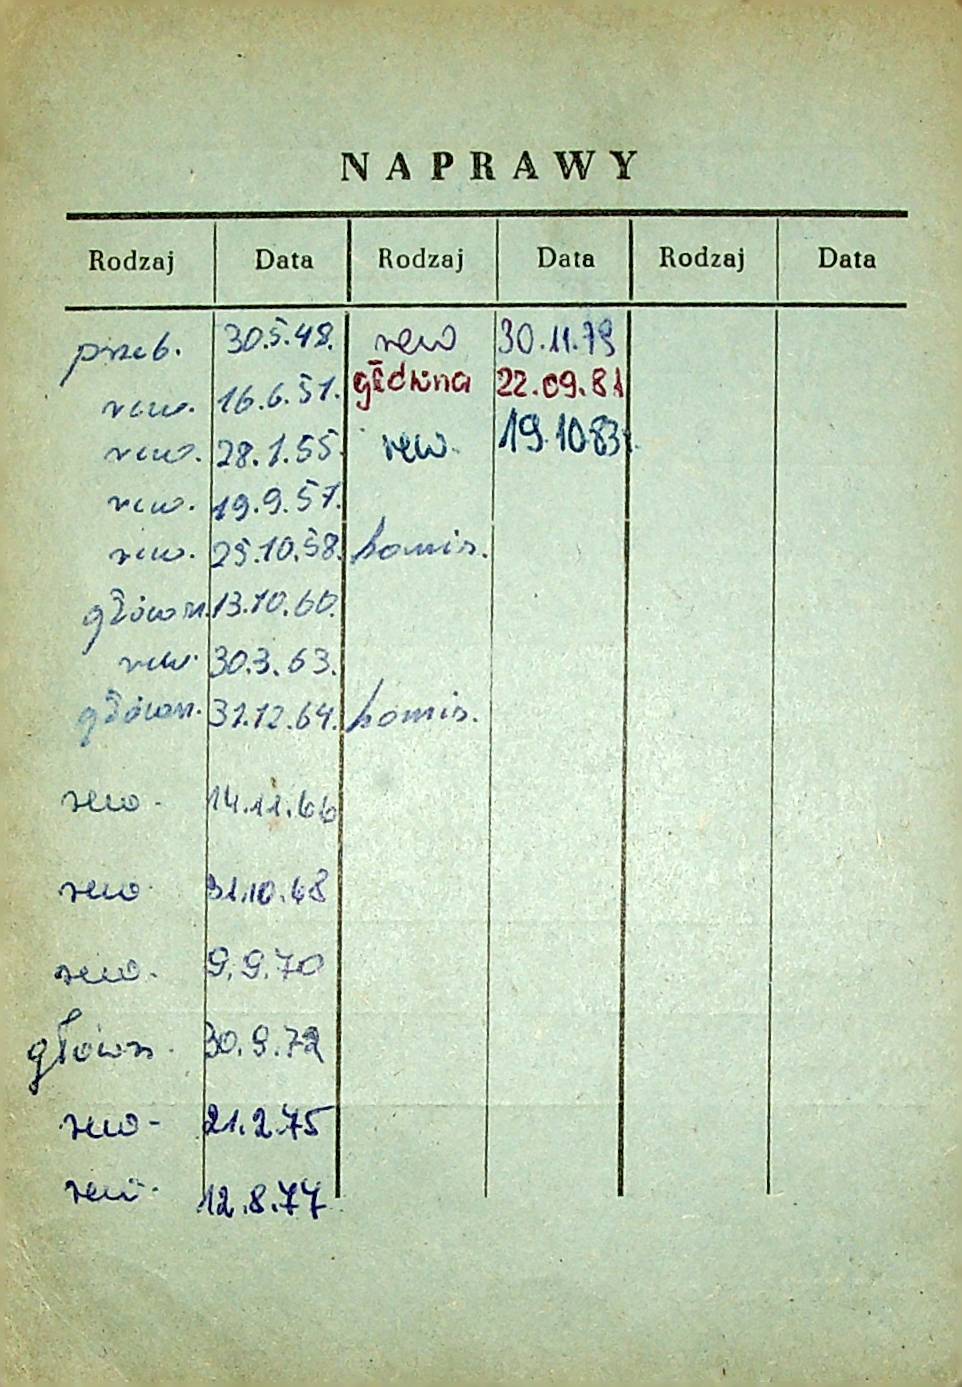 NAPRAWY
Rodzaj Data Rodzaj Data Rodzaj Data
przeb. 30.5.48. rew 30.11.79
rew. 16.6.51. główna 22.09.81
rew. 28.1.55. rew. 19.10.83r.
rew. 19.9.57.
rew. 25.10.58. komis.
główn. 13.10.60.
rew. 30.3.63.
główn. 31.12.64. komis.
rew. 14.11.66
rew. 31.10.68
rew. 9.9.70
główn. 30.9.72
rew- 21.2.75
rew. 12.8.77